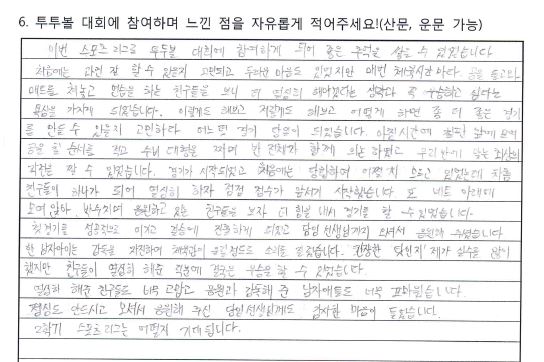 6. 투투볼 대회에 참여하며 느낀 점을 자유롭게 적어주세요!(산문, 운문 가능)
이번 스포츠 리그로 투투볼 대회에 참여하게 되어 좋은 추억을 쌓을 수 있었습니다
처음에는 과연 잘 할 수 있을지 고민되고 두려운 마음도 있었지만 매번 체육시간마다 공을 들고와
매트를 쳐놓고 연습을 하는 친구들을 보니 더 열심히 해야겠다는 생각과 꼭 우승하고 싶다는
욕심을 가지게 되었습니다. 이렇게도 해보고 저렇게도 해보고 어떻게 하면 좀 더 좋은 경기
를 만들 수 있을지 고민하다 어느덧 경기 당일이 되었습니다. 아침시간에 칠판 앞에 모여
공을 할 순서를 적고 수비 대형을 짜며 반 전체가 함께 의논하였고 우리 반에 맞는 최상의
작전을 짤 수 있었습니다. 경기가 시작되었고 처음에는 당황하여 어쩔 줄 모르고 있었는데 차츰
친구들이 하나가 되어 열심히 하자 점점 점수가 앞서기 시작했습니다 또 네트 아래에
모여 앉아 박수치며 응원하고 있는 친구들을 보자 더 힘을 내서 경기를 할 수 있었습니다.
첫경기를 성공적으로 이기고 결승에 진출하게 되었고 담임 선생님까지 오셔서 응원해 주셨습니다
한 남자아이는 감독을 자처하여 체육관이 울릴정도로 소리를 질렀습니다. 긴장한 탓인지 제가 실수를 많이
했지만 친구들이 열심히 해준 덕분에 결국은 우승을 할 수 있었습니다.
열심히 해준 친구들도 너무 고맙고 응원과 감독해 준 남자애들도 너무 고마웠습니다.
점심도 안드시고 오셔서 응원해 주신 담임선생님께도 감사한 마음이 들었습니다.
2학기 스포츠리그는 어떨지 기대됩니다.